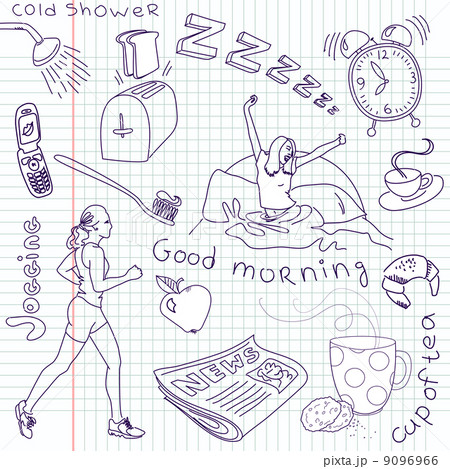 cold shower
ZZZZZZZ
Good morning
Jogging
NEWS
cup of tea
PIXTA
pixta.jp - 9096966